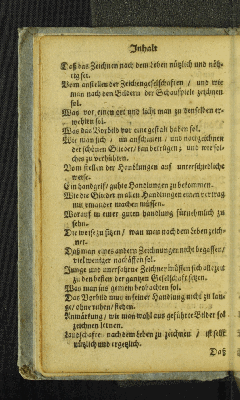 Inhalt
Daß das Zeichnen nach dem Leben nützlich und nöh-
tig sei.
Vom anstellen der Zeichengesellschaften / und wie
man nach den Bildern der Schauspiele zeichnen
sol.
Was vor einen ort und licht man zu denselben er-
wehlen sol.
Was das Vorbild vor eine gestalt haben sol.
Wie man sich / im anschauen / und nachzeichnen
der schönen Glieder / kan betriegen; und wie sol-
ches zu verhühten.
Vom stellen der Handlungen auf unterschiedliche
weise.
Ein handgrif / guhte Handlungen zu bekommen.
Wie die Glieder in allen Handlungen einen vertrag
mit einander machen müssen.
Worauf in einer guten handlung fürnehmlich zu
sehn.
Die weise zu sitzen / wan man nach dem Leben zeich-
net.
Daß man eines andern Zeichnungen nicht begaffen /
viel weniger nachäffen sol.
Junge und unerfahrne Zeichner müssen sich allezeit
zu den besten der ganzen Gesellschaft setzen.
Was man ins gemein beobachten sol.
Das Vorbild mus in seiner Handlung nicht zu lan-
ge / ohne ruhen / stehen.
Anmärkung / wie man wohl ausgeführte Bilder sol
zeichnen lernen.
Landschafte nach dem Leben zu zeichnen / ist sehr
nützlich und ergetzlich.
Daß